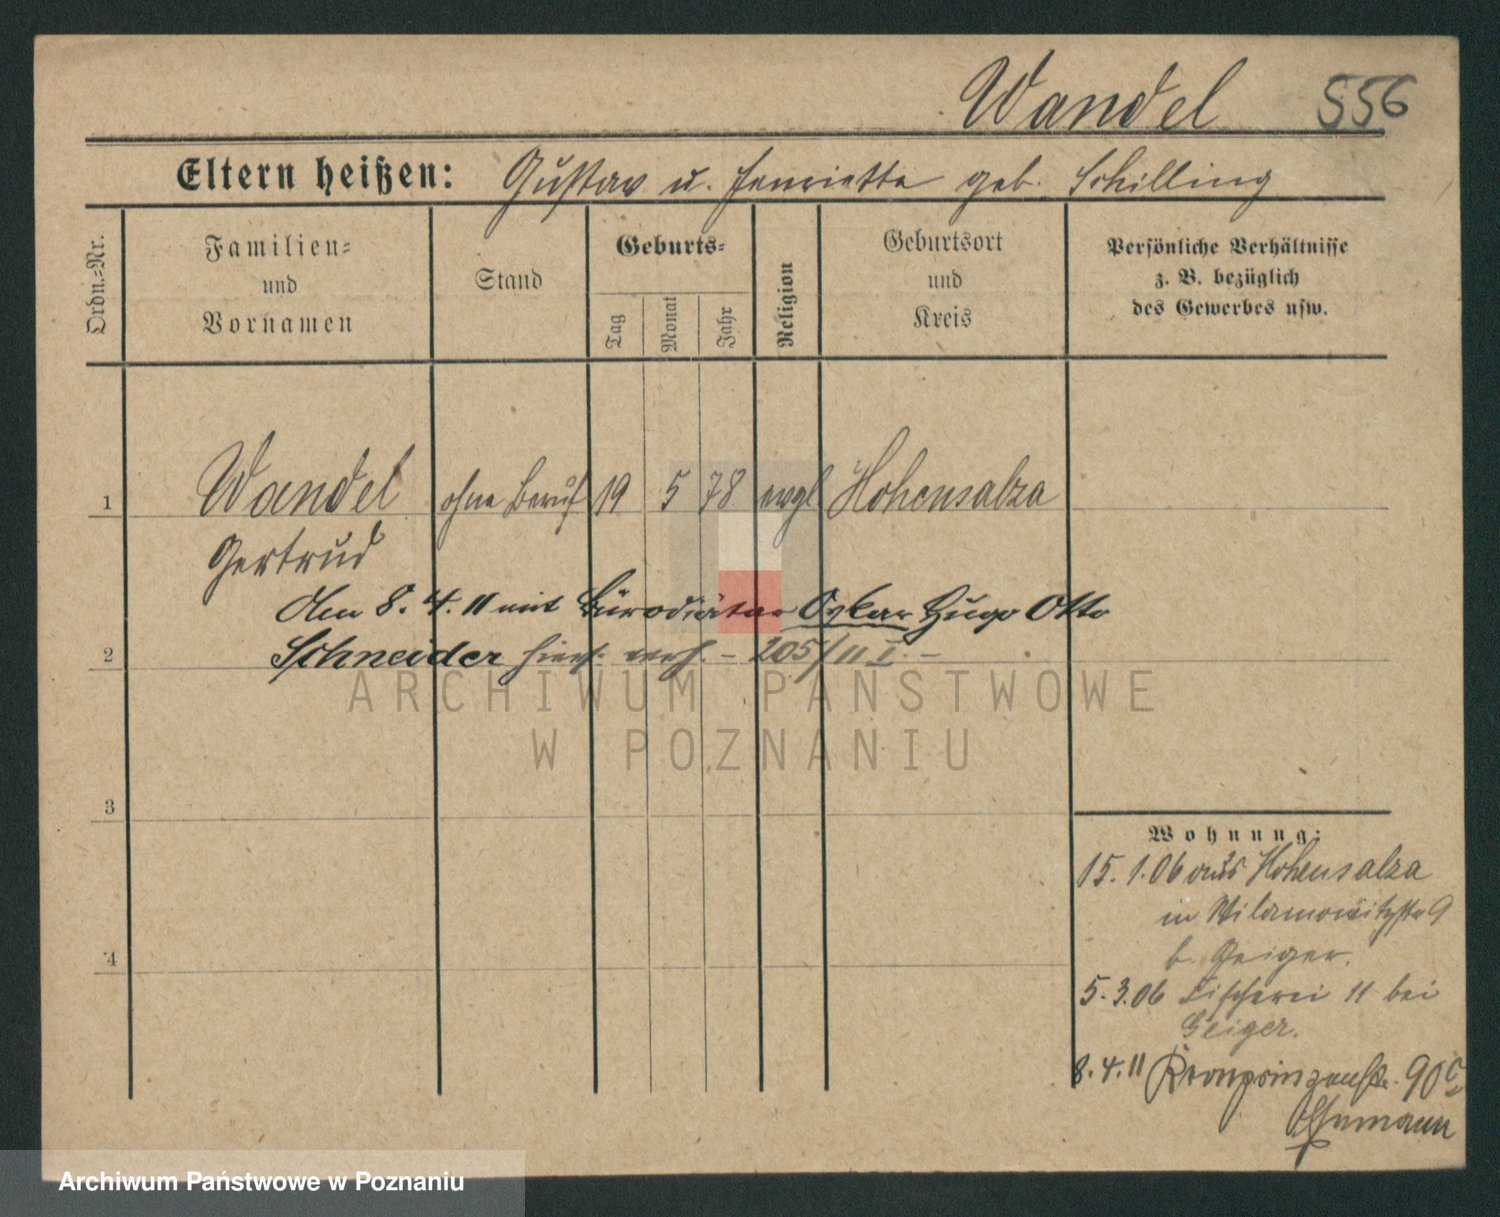 Wandel 556
Eltern heißen: Gustav u. Henriette geb. Schilling
Ordn.-Nr.
Familien-
und
Vornamen
Stand
Geburts-
Tag
Monat
Jahr
Religion
Geburtsort
und
Kreis
Persönliche Verhältnisse
z. B. bezüglich
des Gewerbes usw.
1 Wandel ohne Beruf 19 5 78 evgl Hohensalza
Gertrud
Am 8. 4. 11 mit Bürodiätar Oskar Hugo Otto
2 Schneider hier verh. – 205/11 I. –
3
4
Wohnung:
15. 1. 06 aus Hohensalza
in Wilamowitzstr 9
b. Geiger.
5. 3. 06 Fischerei 11 bei
Geiger.
8. 4. 11 Kronprinzenstr. 90c
ARCHIWUM PAŃSTWOWE
W POZNANIU
Archiwum Państwowe w Poznaniu